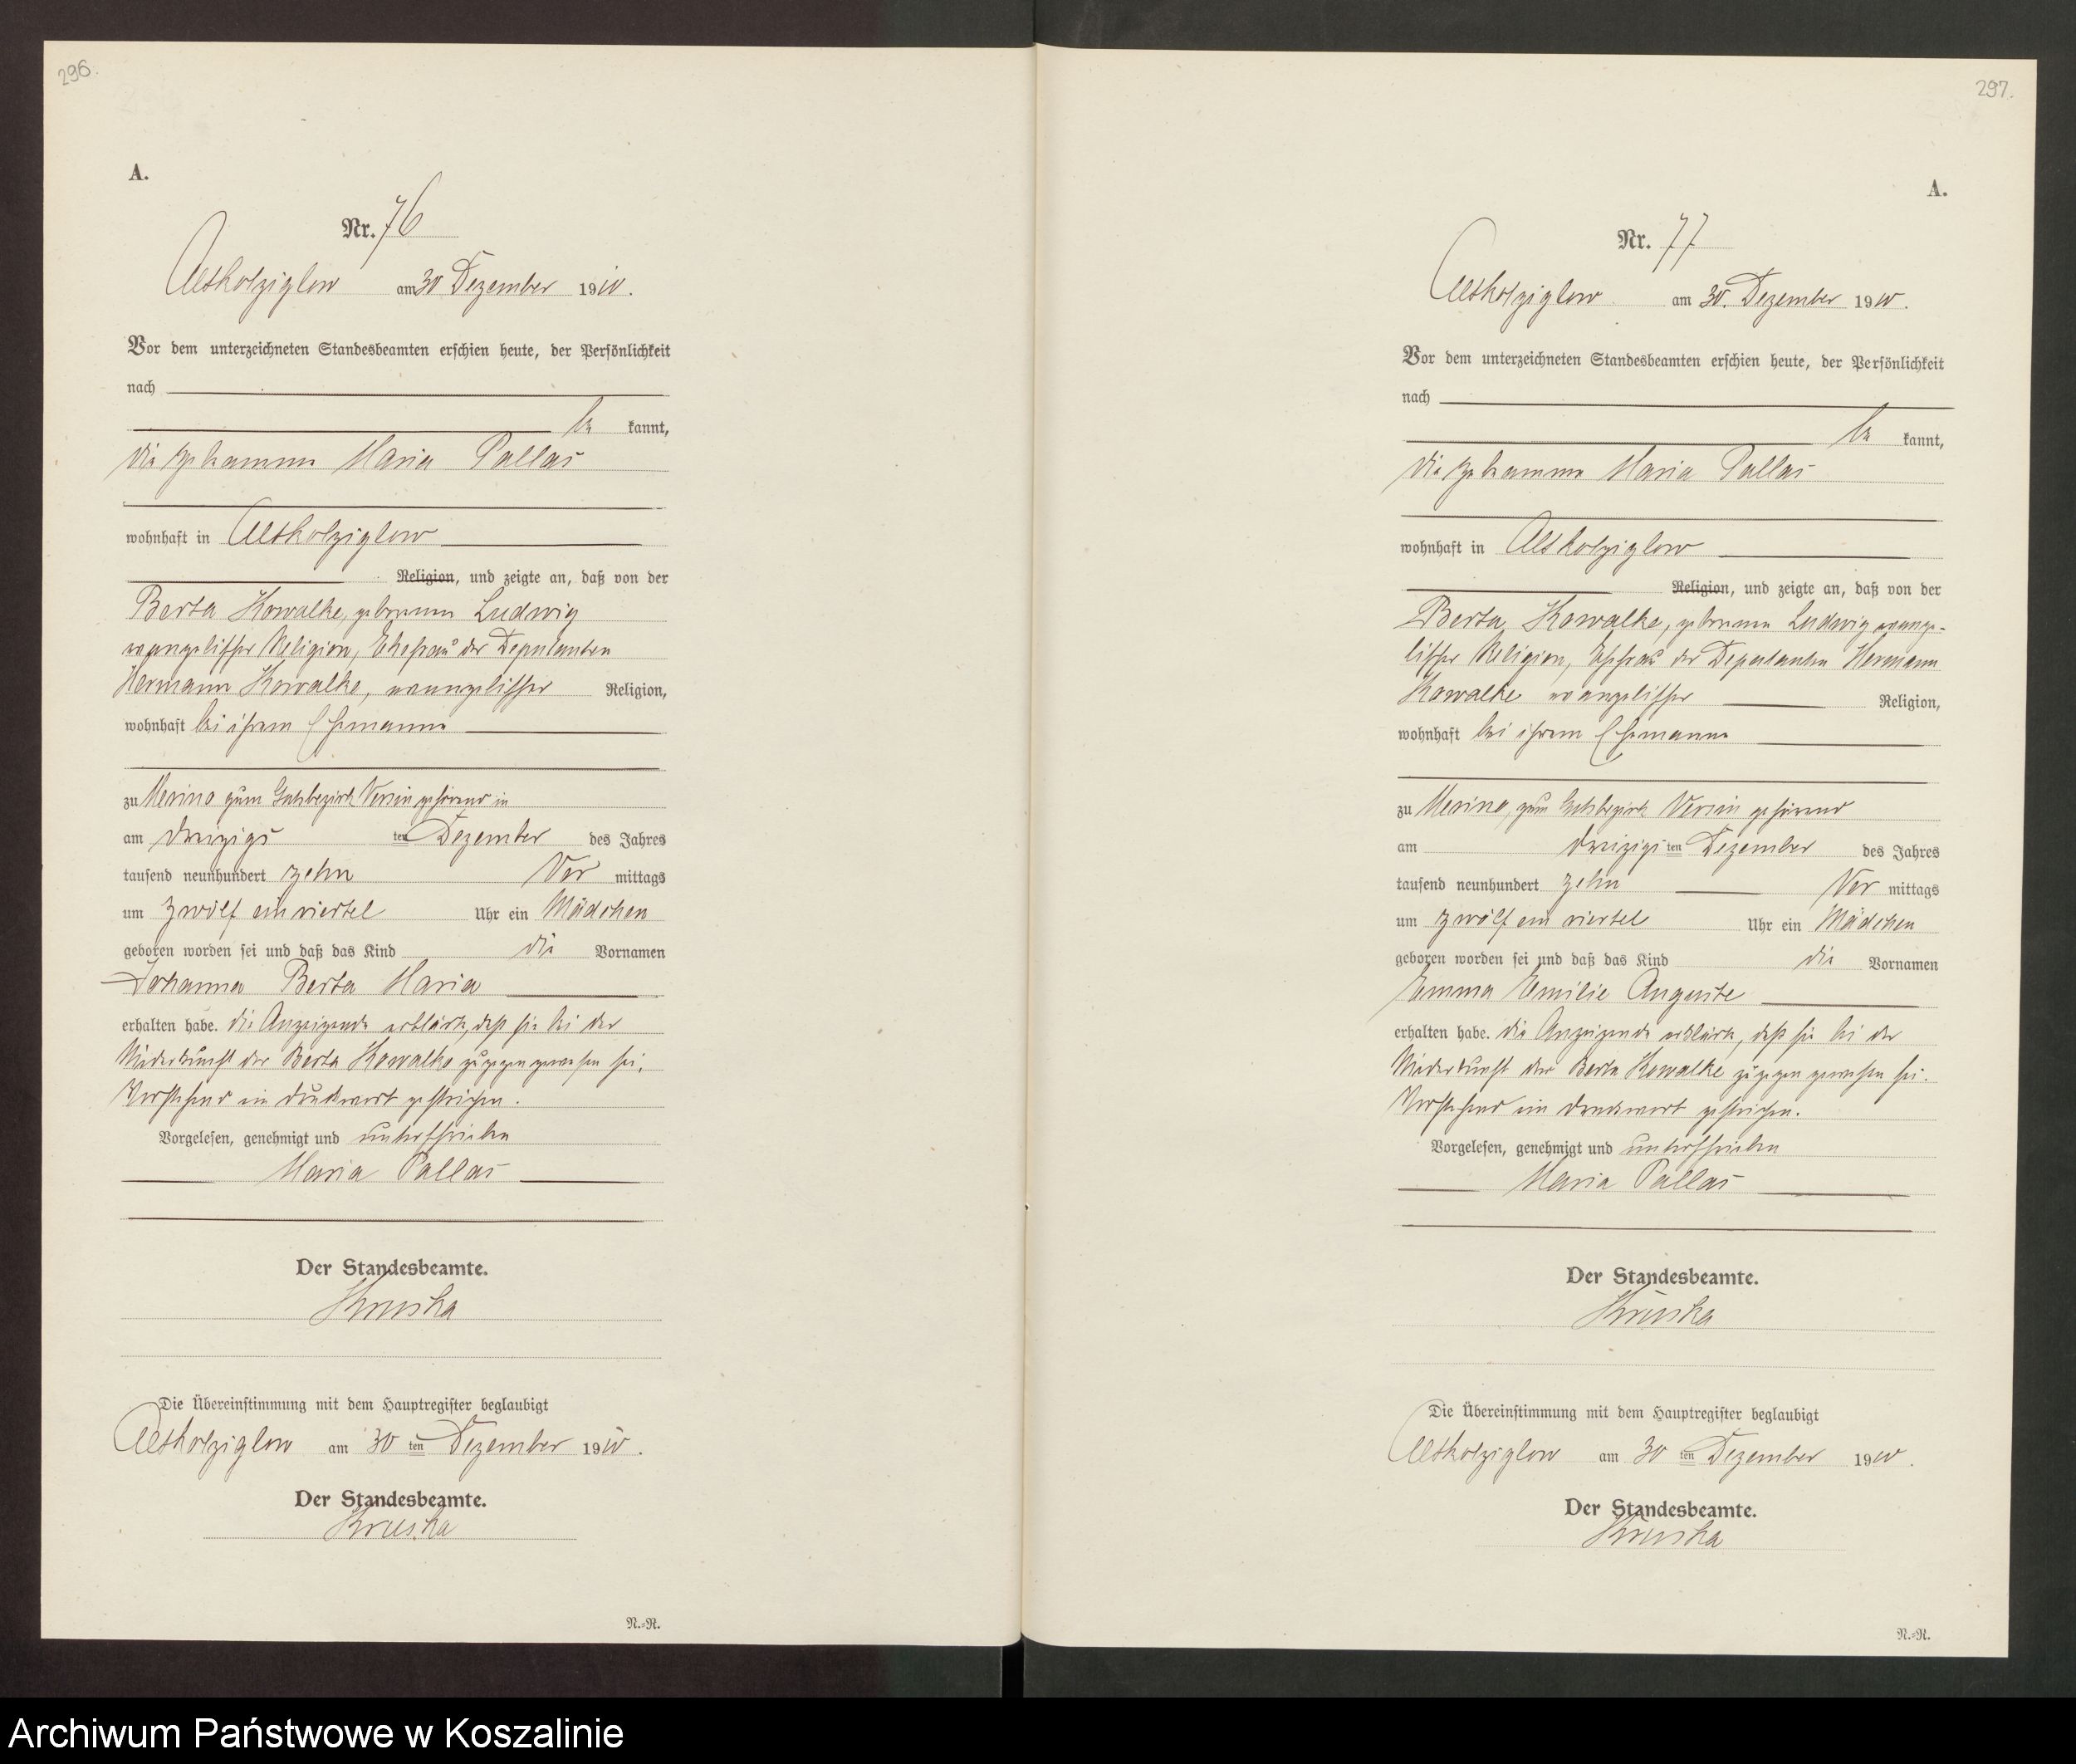 296.
A.
Nr. 76
Altkolziglow am 30 Dezember 1910.
Vor dem unterzeichneten Standesbeamten erschien heute, der Persönlichkeit
nach
be kannt,
die Hebamme Maria Pallas
wohnhaft in Altkolziglow
Religion, und zeigte an, daß von der
Berta Kowalke, geborenen Ludwig
evangelischer Religion, Ehefrau des Deputanten
Hermann Kowalke, evangelischer Religion,
wohnhaft bei ihrem Ehemanne
zu Merino zum Gutsbezirk Versin gehörend in
am dreizigs ten Dezember des Jahres
tausend neunhundert zehn Vor mittags
um zwölf ein viertel Uhr ein Mädchen
geboren worden sei und daß das Kind die Vornamen
Johanna Berta Maria
erhalten habe. die Anzeigende erklärte, daß sie bei der
Niederkunft der Berta Kowalke zugegen gewesen sei,
Vorstehend ein Druckwort gestrichen.
Vorgelesen, genehmigt und unterschrieben
Maria Pallas
Der Standesbeamte.
Kruska
Die Übereinstimmung mit dem Hauptregister beglaubigt
Altkolziglow am 30 ten Dezember 1910.
Der Standesbeamte.
Kruska
N.=R.
297.
A.
Nr. 77
Altkolziglow am 30. Dezember 1910.
Vor dem unterzeichneten Standesbeamten erschien heute, der Persönlichkeit
nach
be kannt,
die Hebamme Maria Pallas
wohnhaft in Altkolziglow
Religion, und zeigte an, daß von der
Berta Kowalke, geborenen Ludwig evange-
lischer Religion, Ehefrau des Deputanten Hermann
Kowalke evangelischer Religion,
wohnhaft bei ihrem Ehemanne
zu Merino, zum Gutsbezirk Versin gehörend
am dreizigs ten Dezember des Jahres
tausend neunhundert zehn Vor mittags
um zwölf ein viertel Uhr ein Mädchen
geboren worden sei und daß das Kind die Vornamen
Emma Emilie Auguste
erhalten habe. die Anzeigende erklärte, daß sie bei der
Niederkunft der Berta Kowalke zugegen gewesen sei.
Vorstehend ein Druckwort gestrichen.
Vorgelesen, genehmigt und unterschrieben
Maria Pallas
Der Standesbeamte.
Kruska
Die Übereinstimmung mit dem Hauptregister beglaubigt
Altkolziglow am 30 ten Dezember 1910.
Der Standesbeamte.
Kruska
N.=R.
Archiwum Państwowe w Koszalinie